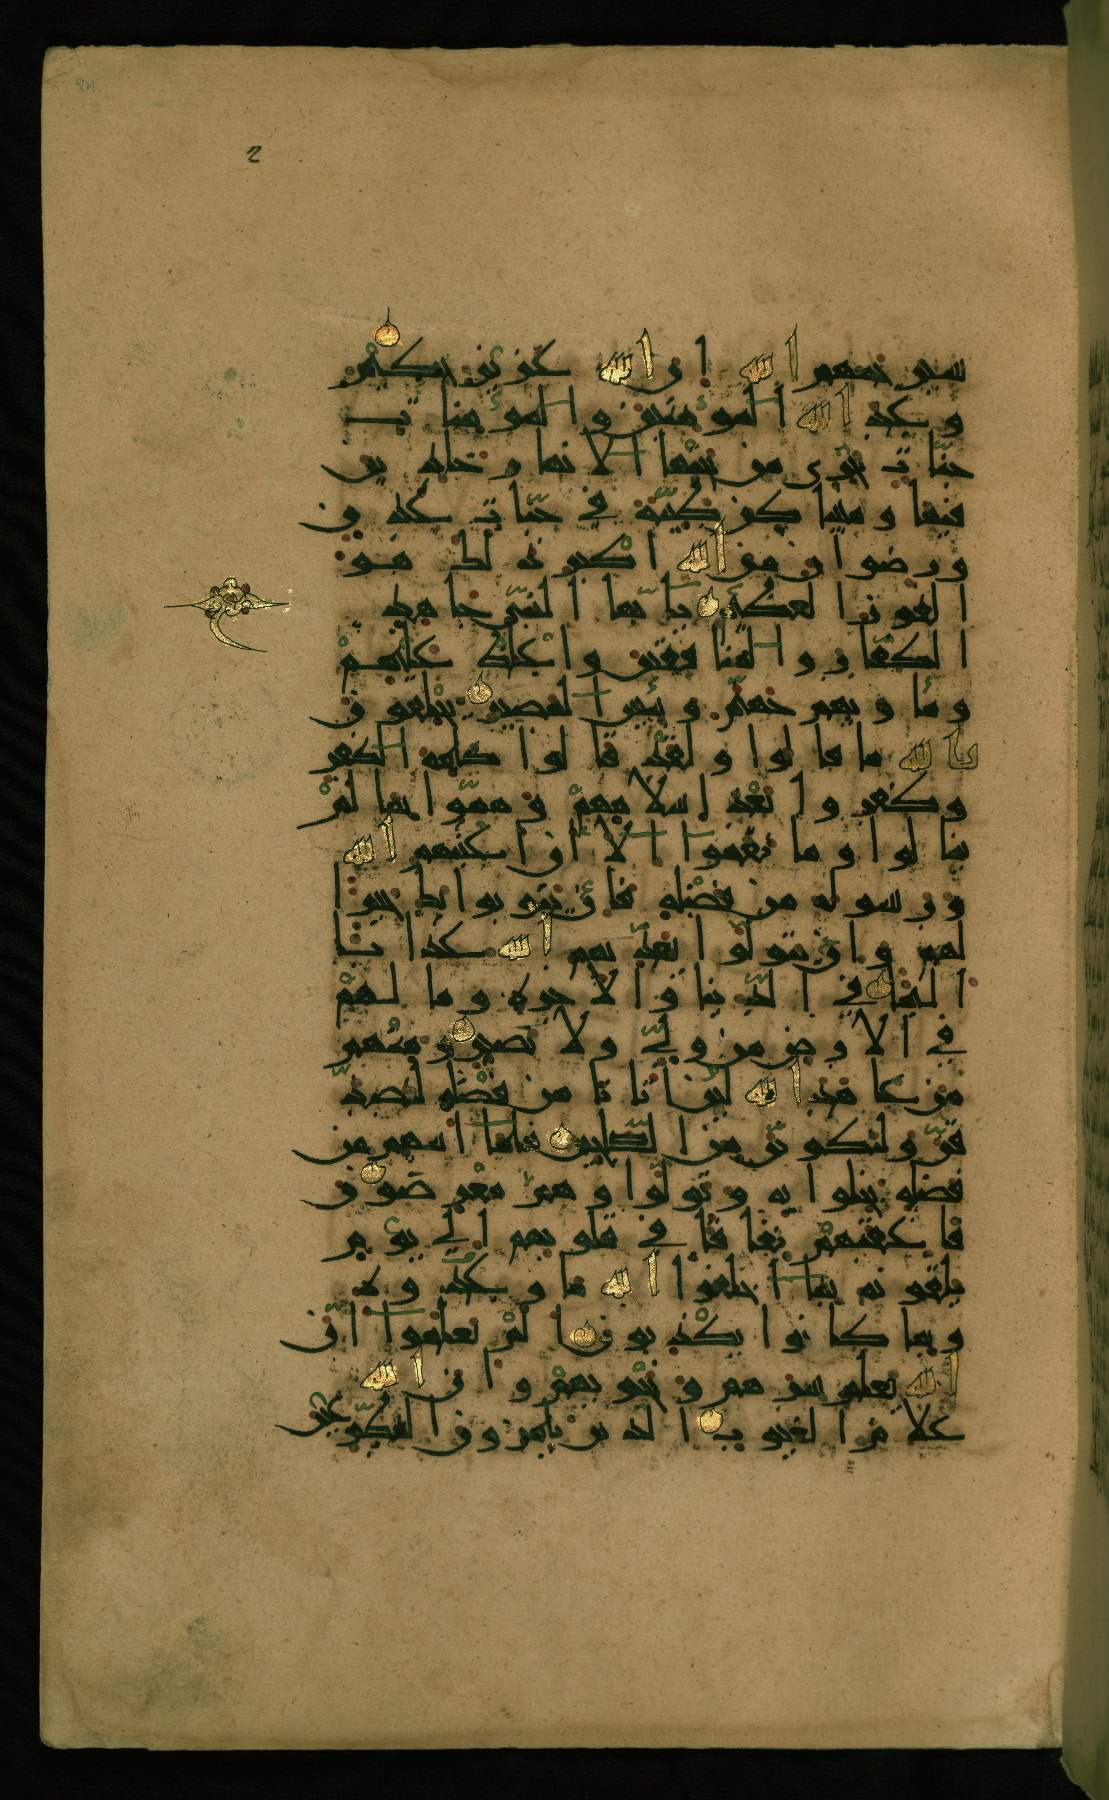 2
سيرحمهم الله ان الله عزيز حكيم
وعد الله المؤمنين والمؤمنات
جنات تجري من تحتها الانهار خالدين
فيها ومساكن طيبة في جنات عدن
ورضوان من الله اكبر ذلك هو
الفوز العظيم يا ايها النبي جاهد
الكفار والمنافقين واغلظ عليهم
ومأويهم جهنم وبئس المصير يحلفون
بالله ما قالوا ولقد قالوا كلمة الكفر
وكفروا بعد اسلامهم وهموا بما لم
ينالوا وما نقموا الا ان اغنيهم الله
ورسوله من فضله فان يتوبوا يك خيرا
لهم وان يتولوا يعذبهم الله عذابا
اليما في الدنيا والاخرة وما لهم
في الارض من ولي ولا نصير ومنهم
من عاهد الله لئن اتانا من فضله لنصد
قن ولنكونن من الصالحين فلما اتيهم من
فضله بخلوا به وتولوا وهم معرضون
فاعقبهم نفاقا في قلوبهم الى يوم
يلقونه بما اخلفوا الله ما وعدوه
وبما كانوا يكذبون الم يعلموا ان
الله يعلم سرهم ونجويهم وان الله
علام الغيوب الذين يلمزون المطوعين